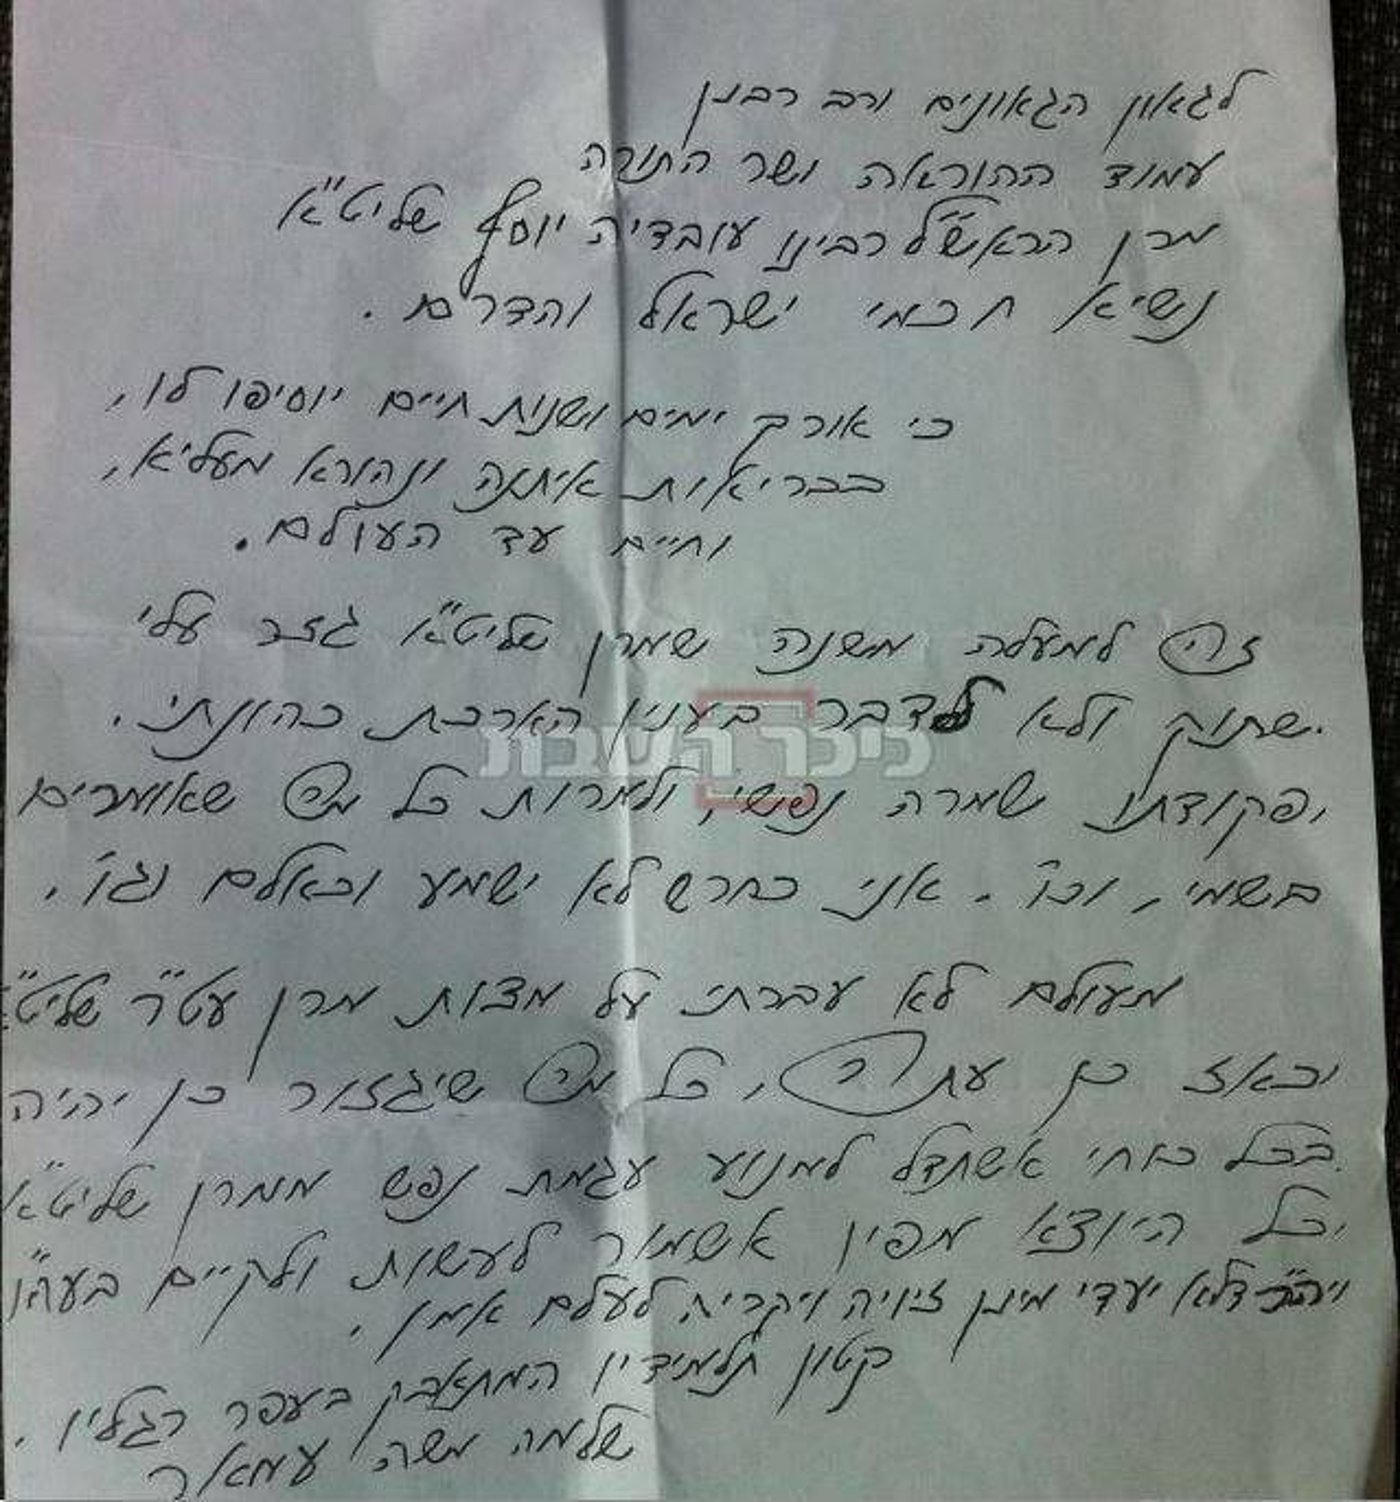 לגאון הגאונים ורב רבנן
עמוד ההוראה ושר התורה
מרן הראש"ל רבינו עובדיה יוסף שליט"א
נשיא חכמי ישראל והדרם.
כי אורך ימים ושנות חיים יוסיפו לו,
בבריאות איתנה ונהורא מעליא,
וחיים עד העולם.
זה למעלה משנה שמרן שליט"א גזר עלי
שתוק ולא לדבר בענין הארכת כהונתי.
פקודתו שמרה נפשי, ולמרות כל מה שאומרים
בשמי, וכו'. אני כחרש לא ישמע וכאלם וגו',
מעולם לא עברתי על מצות מרן עט"ר שליט"א
וכאז כן עתה, כל מה שיגזור כן יהיה
בכל כוחי אשתדל למנוע עגמת נפש ממרן שליט"א
וכל היוצא מפיו אשמור לעשות ולקיים בעה"ו
ויה"ר דלא יעדי מינן זיויה ויקריה לעלם אמן.
קטון תלמידיו המתאבק בעפר רגליו.
שלמה משה עמאר
כיכר השבת